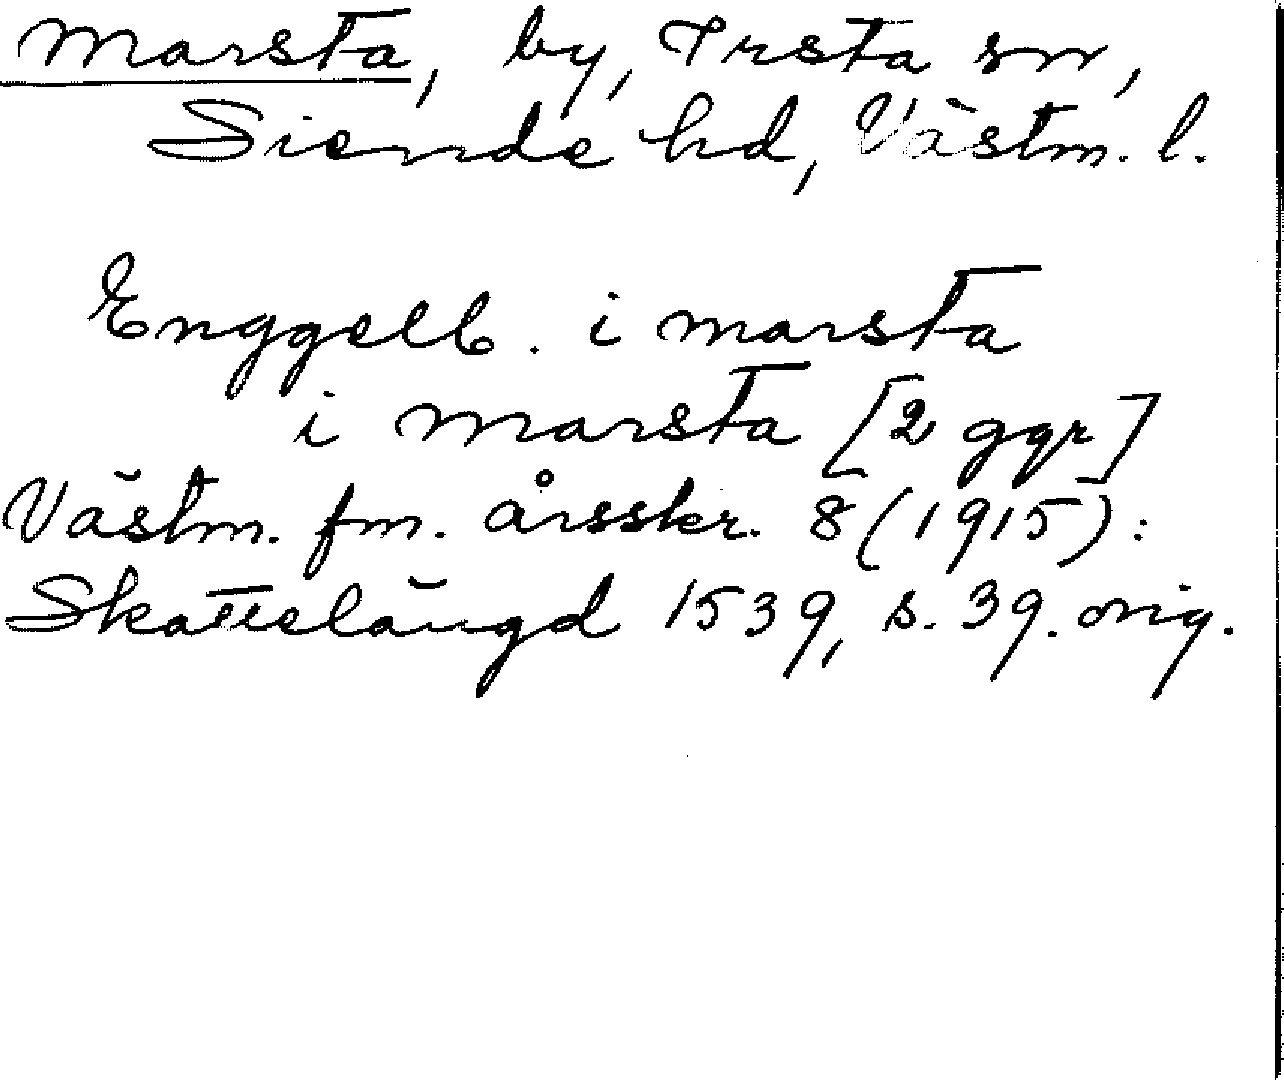 Marsta, by, Irsta sn,
Siende hd, Västm. l.
Enggelb. i marsta
i marsta [2 ggr]
Västm. fm. årsskr. 8 (1915):
Skattelängd 1539, s. 39. orig.